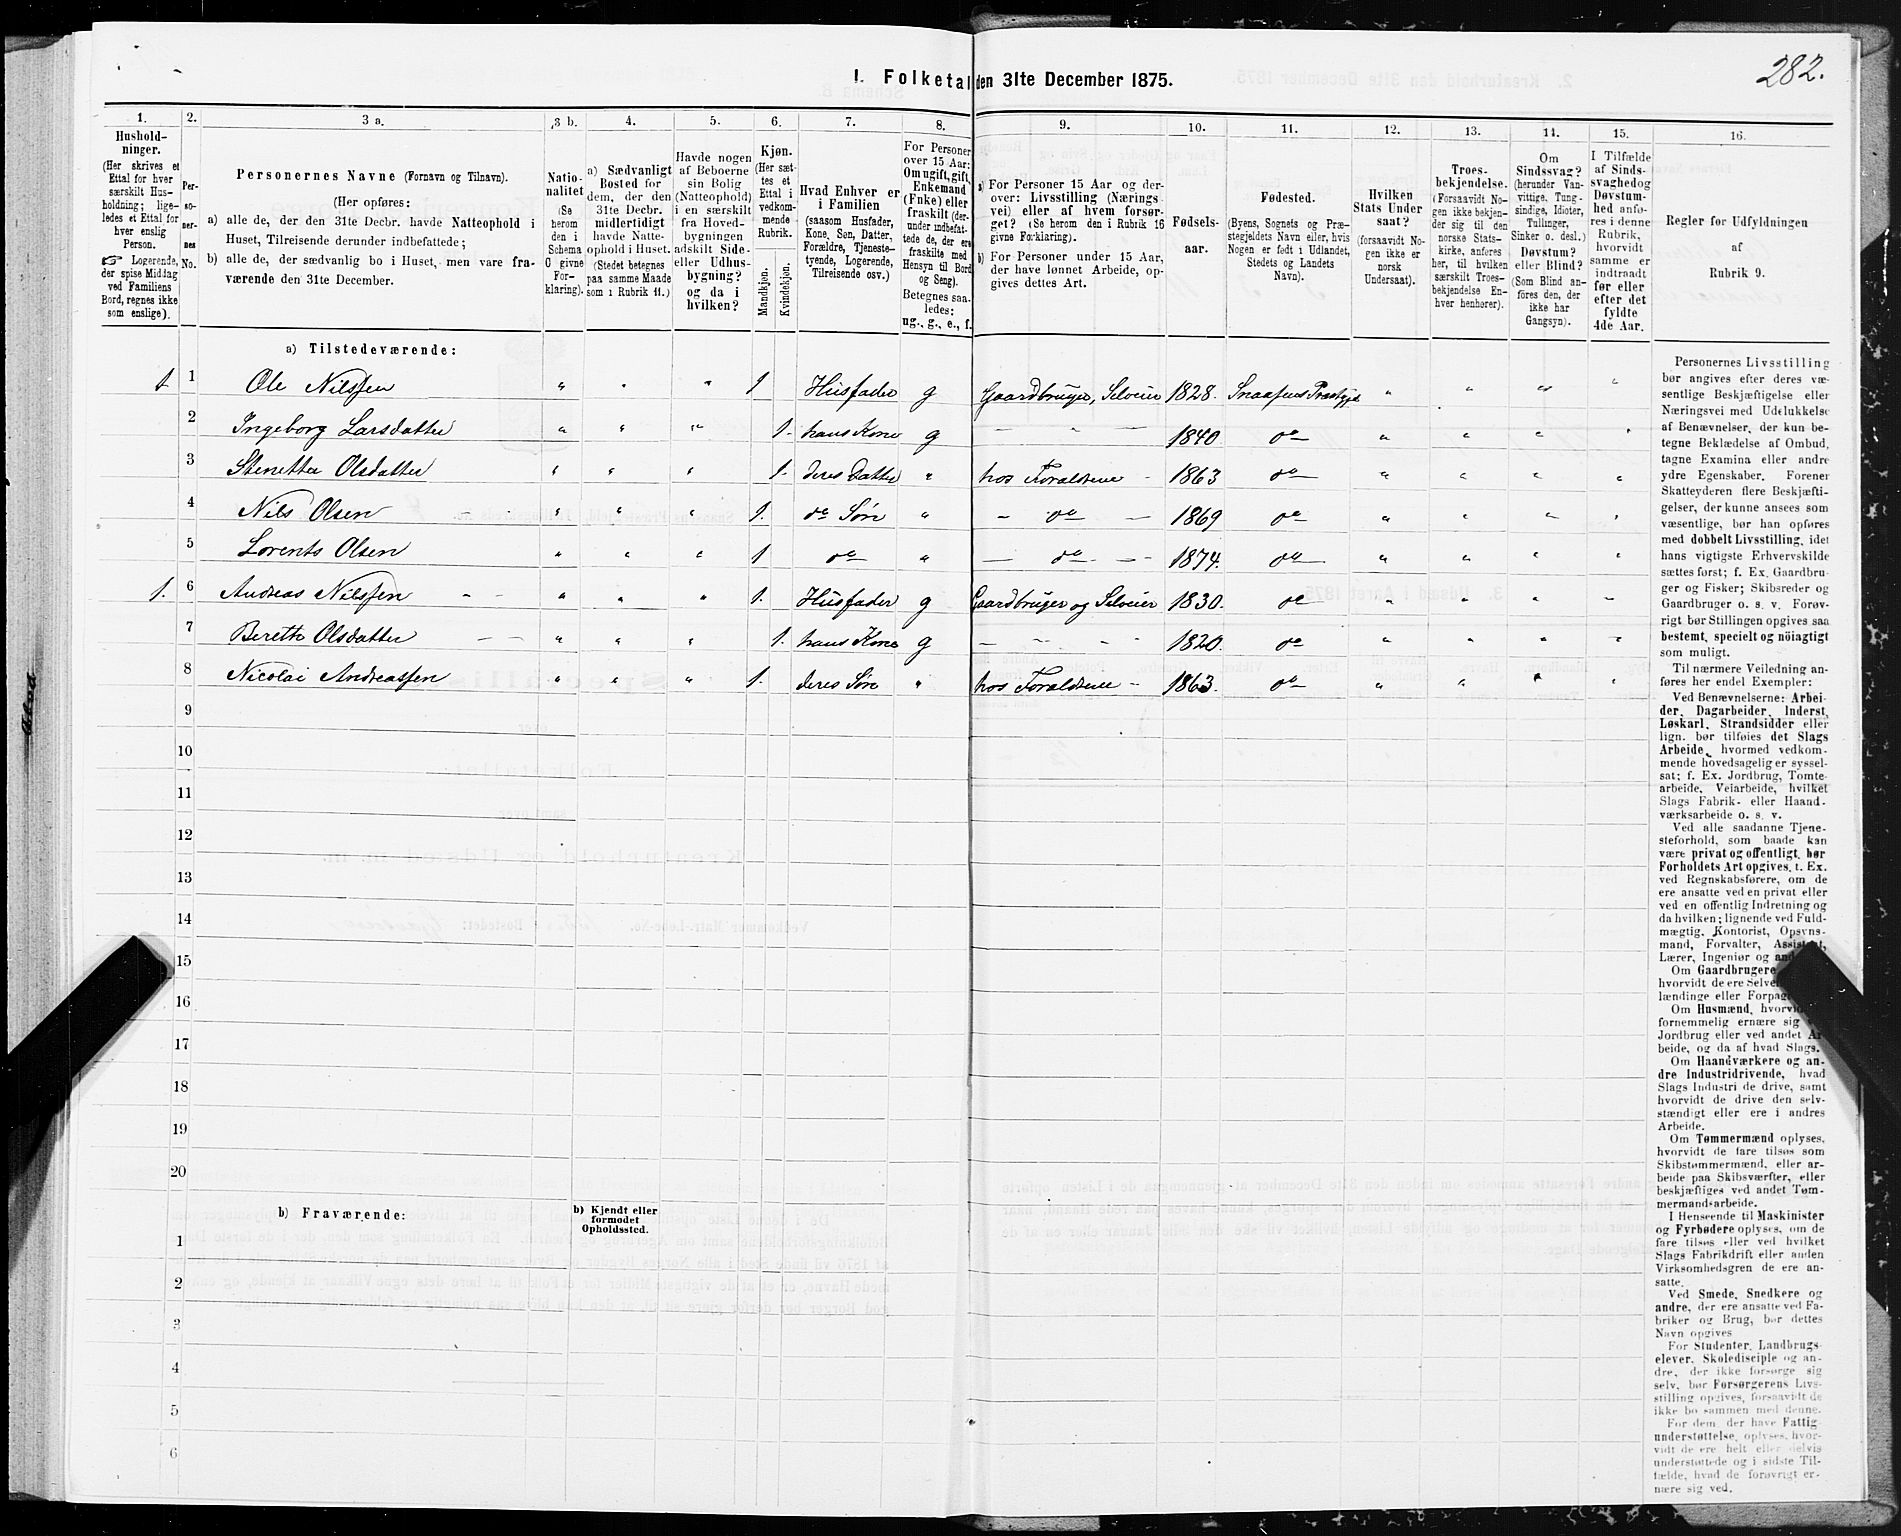 282.
1. Folketal den 31te December 1875.
1. 2. 3 a. 3 b. 4. 5. 6. 7. 8. 9. 10. 11. 12. 13. 14. 15. 16.
Hushold-
ninger.
(Her skrives et
Ettal for hver
særskilt Hus-
holdning; lige-
ledes et Ettal for
hver enslig
Person.
☞ Logerende,
der spise Middag
ved Familiens
Bord, regnes ikke
som enslige).
Per-
so-
ner-
nes
No.
Personernes Navne (Fornavn og Tilnavn).
(Her opføres:
a) alle de, der den 31te Decbr. havde Natteophold i
Huset, Tilreisende derunder indbefattede;
b) alle de, der sædvanlig bo i Huset, men vare fra-
værende den 31te December.
Natio-
nalitet
(Se
herom
den i
Schema
O givne
For-
klaring).
a) Sædvanligt
Bosted for
dem, der den
31te Decbr.
midlertidigt
havde Natte-
ophold i Huset.
(Stedet betegnes
paa samme Maade
som i Rubrik 11.)
Havde nogen
af Beboerne
sin Bolig
(Natteophold)
i en særskilt
fra Hoved-
bygningen
adskilt Side-
eller Udhus-
bygning?
og da i
hvilken?
Kjøn.
(Her sæt-
tes et
Ettal i
vedkom-
mende
Rubrik.
Mandkjøn.
Kvindekjøn.
Hvad Enhver er
i Familien
(saasom Husfader,
Kone, Søn, Datter,
Forældre, Tjeneste-
tyende, Logerende,
Tilreisende osv.)
For Personer
over 15 Aar:
Om ugift, gift,
Enkemand
(Enke) eller
fraskilt (der-
under indbefat-
tede de, der ere
fraskilte med
Hensyn til Bord
og Seng).
Betegnes saa-
ledes:
ug., g., e., f.
a) For Personer 15 Aar og der-
over: Livsstilling (Nærings
vei) eller af hvem forsør-
get? (Se herom den i Rubrik 16
givne Forklaring).
b) For Personer under 15 Aar,
der have lønnet Arbeide, op-
gives dettes Art.
Fødsels-
aar.
Fødested.
(Byens, Sognets og Præ-
stegjeldets Navn eller, hvis
Nogen er født i Udlandet,
Stedets og Landets
Navn).
Hvilken
Stats Under
saat?
(forsaavidt No-
gen ikke er
norsk
Undersaat).
Troes-
bekjendelse.
(Forsaavidt No-
gen ikke bekjen-
der sig til den
norske Stats-
kirke, anføres
her, til hvilken
særskilt Troes-
bekjendelse En-
hver henhører).
Om
Sindssvag?
(herunder Van-
vittige, Tung-
sindige, Idioter,
Tullinger,
Sinker o. desl.)
Døvstum?
eller Blind?
(Som Blind an-
føres den, der
ikke har
Gangsyn).
I Tilfælde
af Sinds-
svaghed og
Døvstum-
hed anfø-
res i denne
Rubrik,
hvorvidt
samme er
indtraadt
før eller
efter det
fyldte
4de Aar.
Regler før Udfyldningen
af
Rubrik 9.
a) Tilstedeværende:
1 1 Ole Nilssen „ „ „ 1 Husfader g Gaardbruger, Selveier 1828. Snaasens Præstgjd „ „ „ „
2 Ingeborg Larsdatter „ „ „ 1. hans Kone g — „ — 1840. do „ „ „ „
3 Stenetta Olsdatter „ „ „ 1. deres Datter „ hos Forældrene - 1863 do „ „ „ „
4 Nils Olsen „ „ „ 1. do Søn „ - do — 1869 do „ „ „ „
5 Lorents Olsen „ „ „ 1 do „ — do — 1874. do „ „ „ „
1. 6 Andreas Nilssen „ „ „ 1. Husfader g Gaardbruger og Selveier 1830. do „ „ „ „
7 Bereth Olsdatter „ „ „ 1. hans Kone g — „ — 1820. do „ „ „ „
8 Nicolai Andreassen „ „ „ 1. deres Søn „ hos Forældrene - 1863. do „ „ „ „
9
10
11
12
13
14
15
16
17
18
19
20
b) Fraværende:
b) Kjendt eller
formodet
Opholdssted.
1
2
3
4
5
6
Personernes Livsstilling
bør angives efter deres væ-
sentlige Beskjæftigelse eller
Næringsvei med Udelukkelse
af Benævnelser, der kun be-
tegne Beklædelse af Ombud,
tagne Examina eller andre
ydre Egenskaber. Forener
Skatteyderen flere Beskjæfti-
gelser, der kunne ansees som
væsentlige, bør han opføres
med dobbelt Livsstilling, idet
hans vigtigste Erhvervskilde
sættes først; f. Ex. Gaardbru-
ger og Fisker; Skibsreder og
Gaardbruger o. s. v. Forøv-
rigt bør Stillingen opgives saa
bestemt, specielt og nöiagtigt
som muligt.
Til nærmere Veiledning an-
føres her endel Exempler:
Ved Benævnelserne: Arbei-
der, Dagarbeider, Inderst,
Løskarl, Strandsidder eller
lign. bør tilføies det Slags
Arbeide, hvormed vedkom-
mende hovedsagelig er syssel-
sat; f. Ex. Jordbrug, Tomte-
arbeide, Veiarbeide, hvilket
Slags Fabrik- eller Haand-
værksarbeide o. s. v.
Ved alle saadanne Tjene-
steforhold, som baade kan
være privat og offentligt, bør
Forholdets Art opgives, t. Ex.
ved Regnskabsførere, om de
ere ansatte ved en privat eller
ved en offentlig Indretning og
da hvilken; lignende ved Fuld-
mægtig, Kontorist, Opsyns-
mand, Forvalter, Assistent,
Lærer, Ingeniør og
Om Gaardbrugere
hvorvidt de ere
lændinge eller
Om Husmænd,
fornemmelig ernære sig
Jordbrug eller ved andet Ar
beide, og da af hvad Slags.
Om Haandværkere og an-
dre Industridrivende, hvad
Slags Industri de drive, samt
hvorvidt de drive den selv-
stændigt eller ere i andres
Arbeide.
Om Tømmermænd oplyses,
hvorvidt de fare tilsøs som
Skibstømmermænd, eller ar-
beide paa Skibsværfter, eller
beskjæftiges ved andet Tøm-
mermandsarbeide.
I Henseende til Maskinister
og Fyrbødere oplyses, om de
fare tilsøs eller ved hvilket
Slags Fabrikdrift eller anden
Virksomhedsgren de ere an-
satte.
Ved Smede, Snedkere og
andre, der ere ansatte ved Fa-
briker og Brug, bør dettes
Navn opgives
For Studenter, Landbrugs-
elever, Skoledisciple og an-
dre, der ikke forsørge sig
selv, bør Forsørgerens Livs-
stilling opgives, forsaavidt de
ikke bo sammen med denne.
For dem, der have Fattig-
understøttelse, oplyses, hvor-
vidt de ere helt eller delvis
understøttede og i sidste Til-
fælde, hvad de forøvrigt er-
nære sig ved.